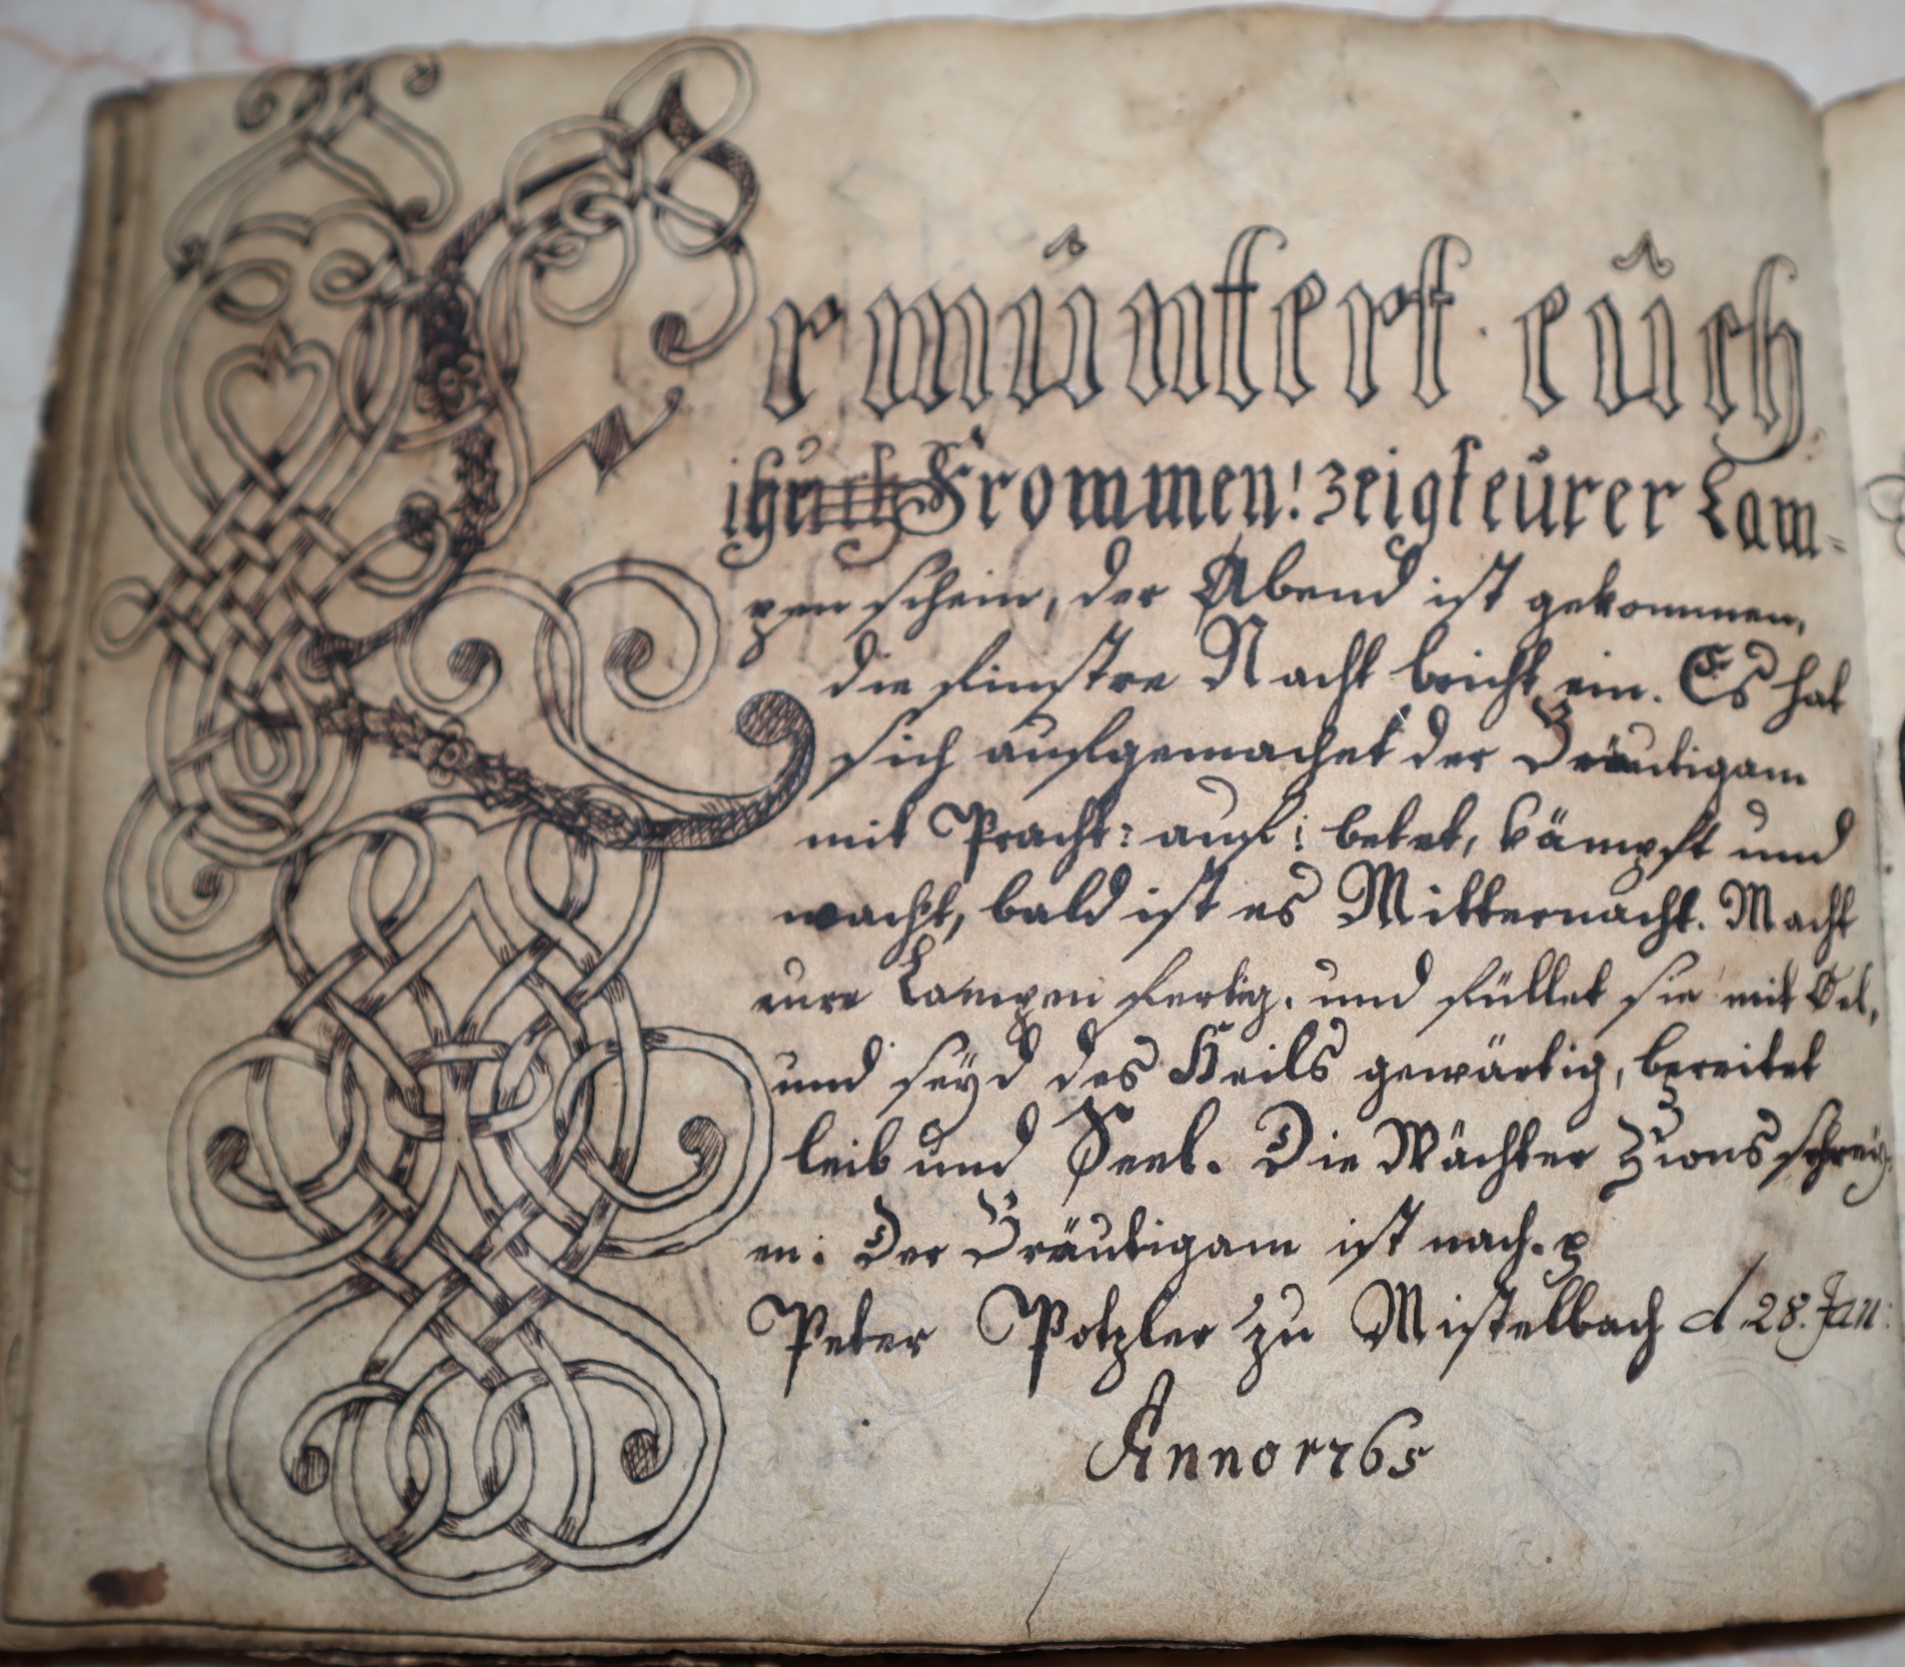 Ermüntert eüch
ihr Frommen! zeigt eürer Lam=
pen schein, der Abend ist gekommen,
die finstre Nacht bricht ein. Es hat
sich aufgemachet der Bräutigam
mit Pracht: auf! betet, kämpft und
wacht, bald ist es Mitternacht. Macht
eure Lampen fertig, und füllet sie mit Oel,
und seyd des Heils gewärtig, bereitet
leib und Seel. Die Wächter Zions schrey-
en: Der Bräutigam ist nach.
Peter Potzler zu Mistelbach d. 28. Jan:
Anno 1765